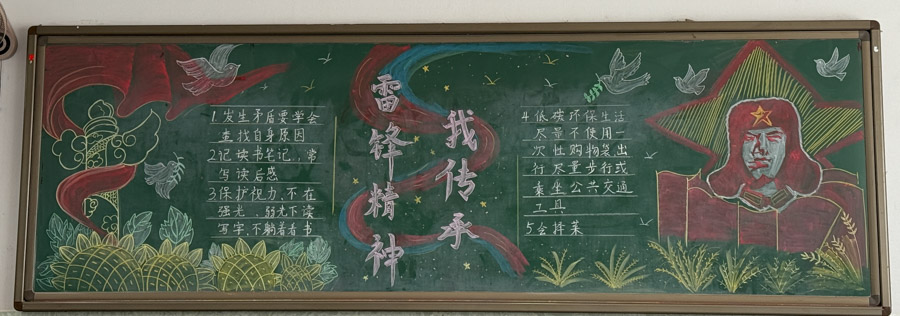 1.发生矛盾要学会
查找自身原因
2记读书笔记,常
写读后感
3保护视力,不在
强光、弱光下读
写字,不躺着看书
雷锋精神
我传承
4.低碳环保生活
尽量不使用一
次性购物袋出
行尽量步行或
乘坐公共交通
工具
5会择菜